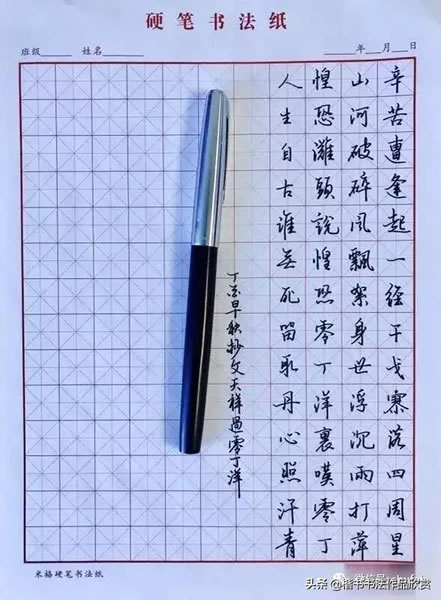 硬笔书法纸
班级_____ 姓名_____ _____年___月___日
辛苦遭逢起一经干戈寥落四周星
山河破碎风飘絮身世浮沉雨打萍
惶恐灘頭說惶恐零丁洋裏嘆零丁
人生自古谁無死留取丹心照汗青
丁酉早秋抄文天祥過零丁洋
米格硬笔书法纸
头条 @楷书书法作品欣赏